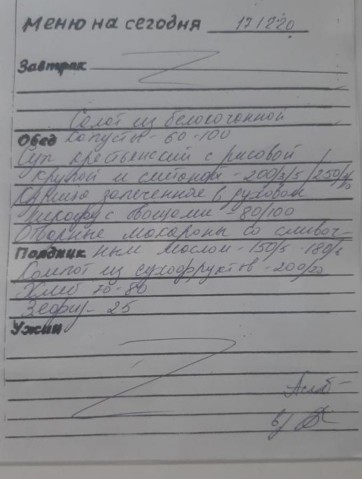 Меню на сегодня 17/12 20
Завтрак
Салат из белокочанной
Обед капусты - 60-100
Суп крестьянский с рисовой
крупой и сметаной - 200/5/250/
запеченное в духовом
шкафу с овощами - 80/100
Отварные макароны со сливоч-
Полдник ным маслом - 150/5 - 180/
Компот из сухофруктов - 200/
Хлеб 70-80
- 25
Ужин